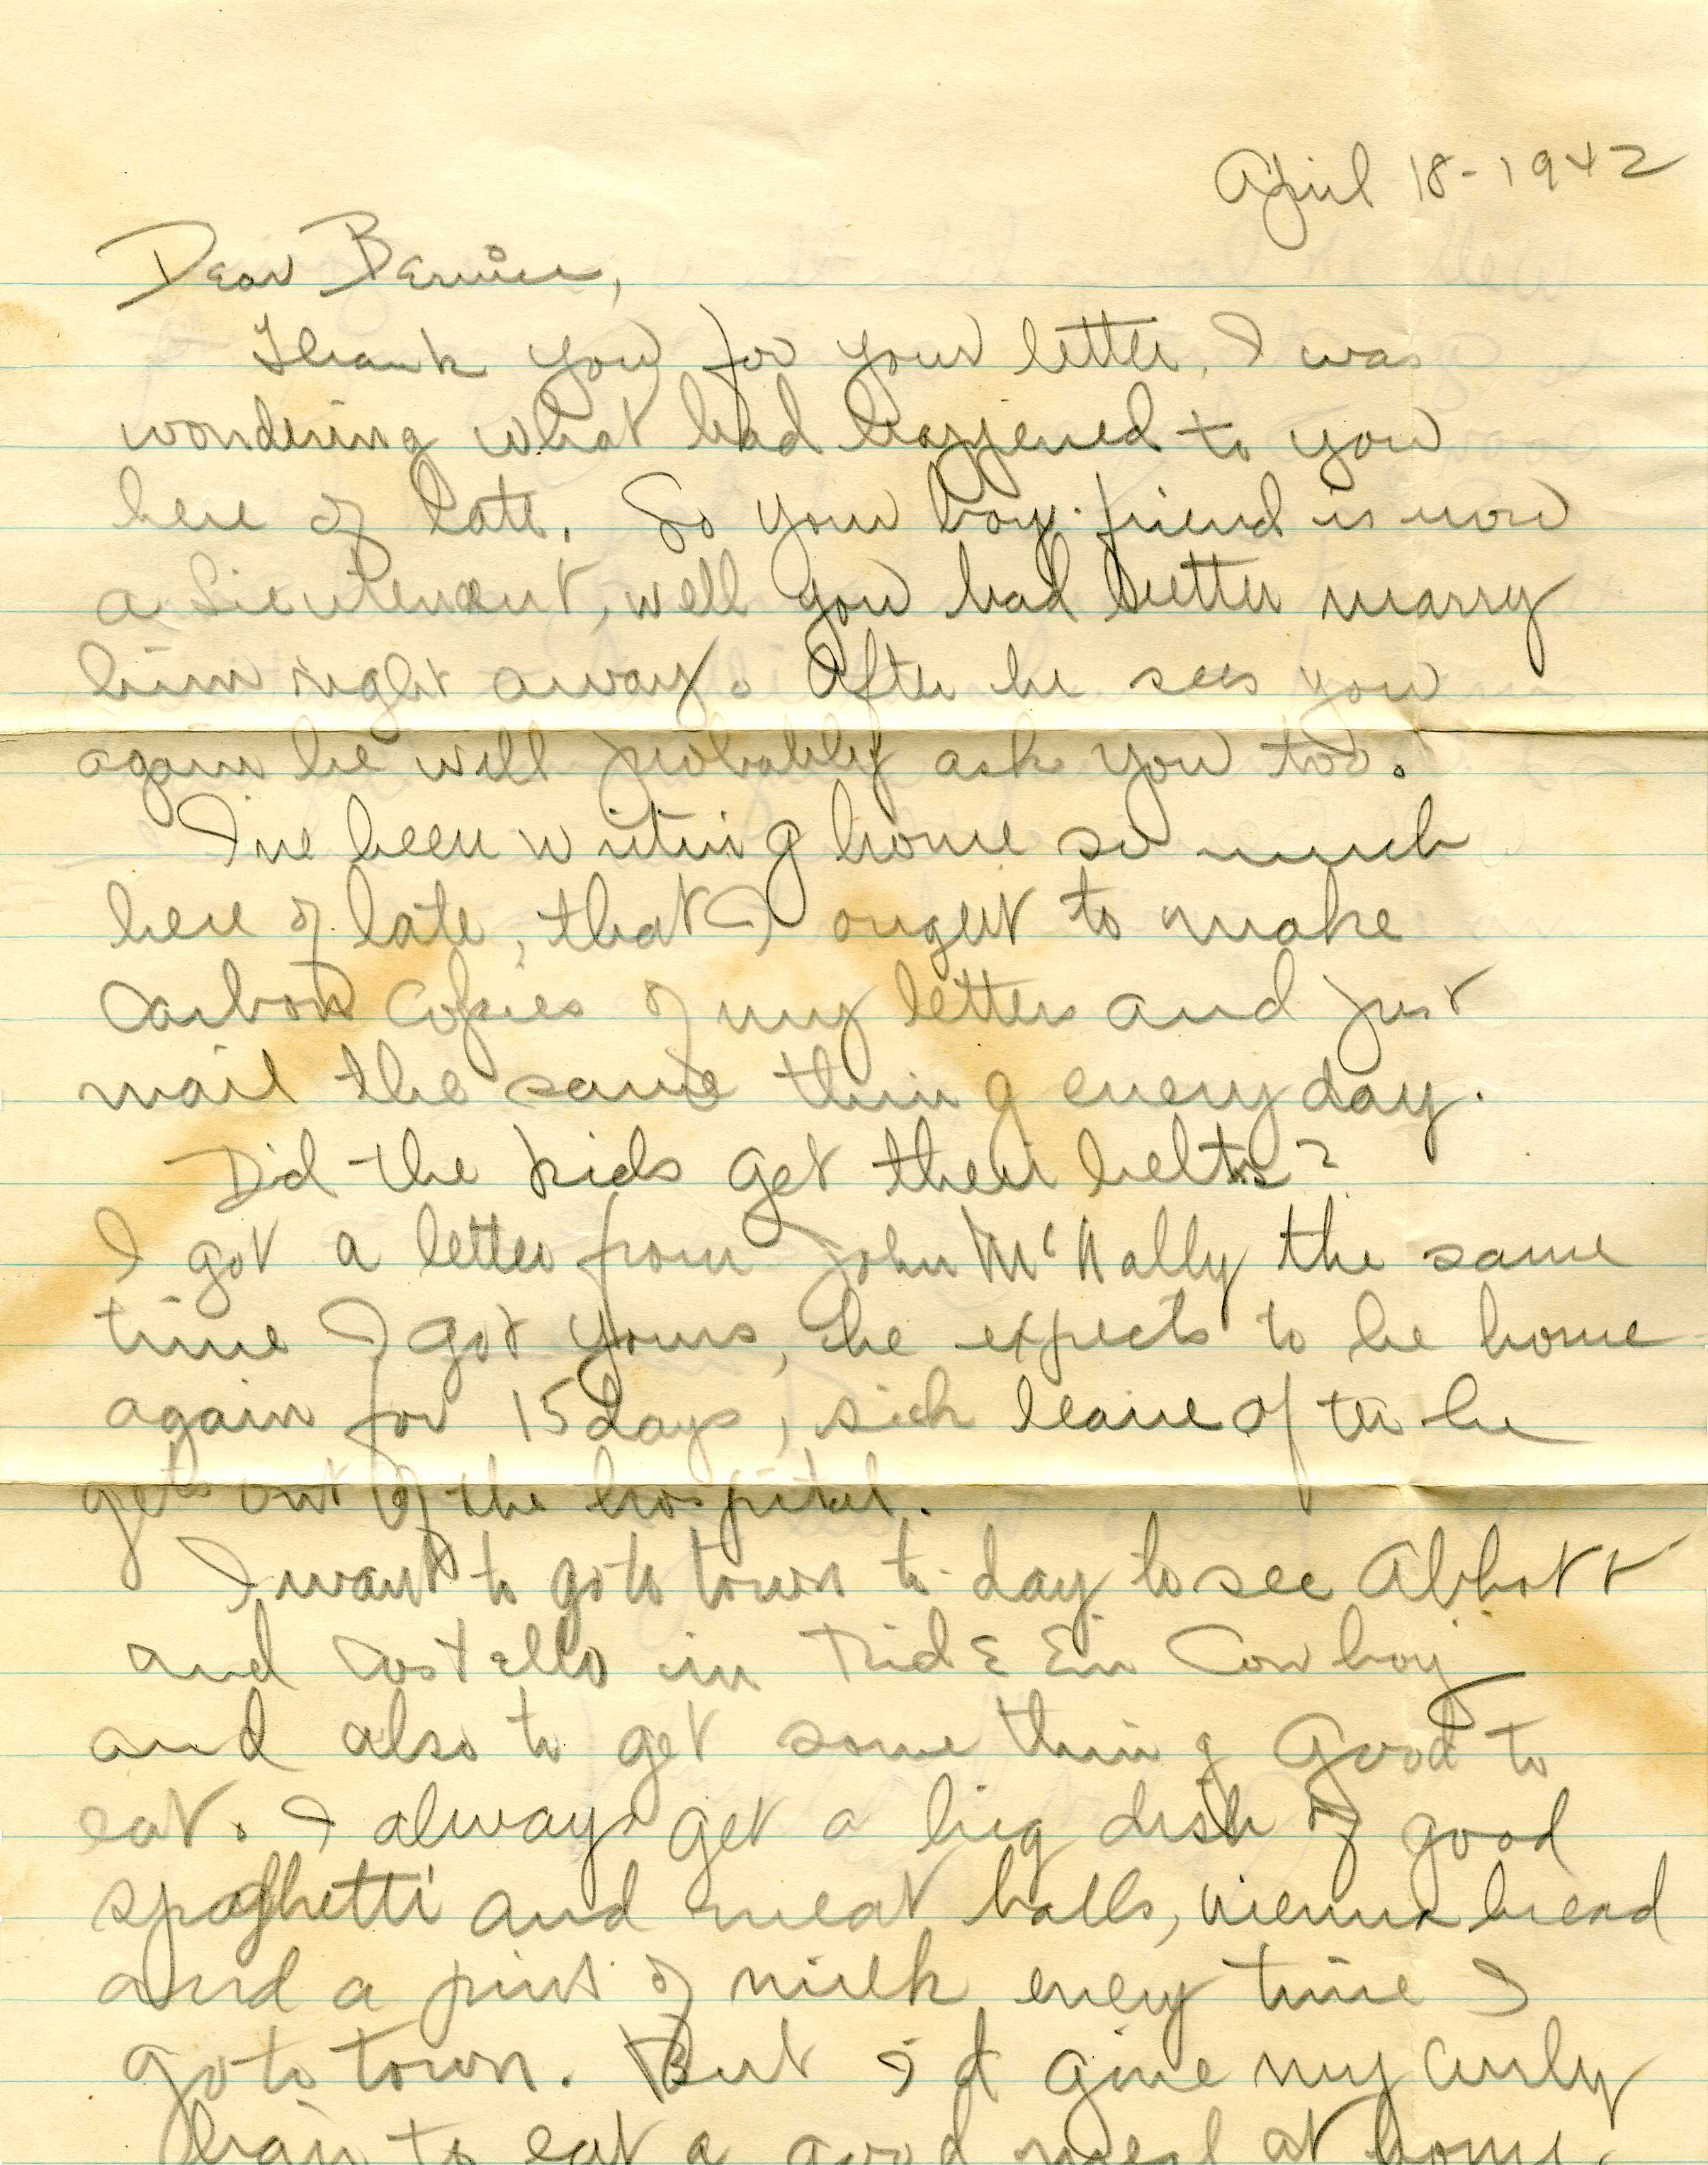 April 18-1942
Dear Bernice,
Thank you for your letter. I was
wondering what had happened to you
here of late. So your boy-friend is now
a Lieutenant, well you had better marry
him right away. After he sees you
again he will probably ask you too.
I've been writing home so much
here of late, that I ought to make
Carbon Copies of my letters and just
mail the same thing every day.
Did the kids get their belts?
I got a letter from John McNally the same
time I got yours, he expects to be home
again for 15 days, sick leave after he
gets out of the hospital.
I want to go to town to-day to see Abbott
and Costello in Ride Em Cowboy
and also to get some thing good to
eat. I always get a big dish of good
spaghetti and meat balls, vienna bread
and a pint of milk every time I
go to town. But I'd give my curly
hair to eat a good meal at home.